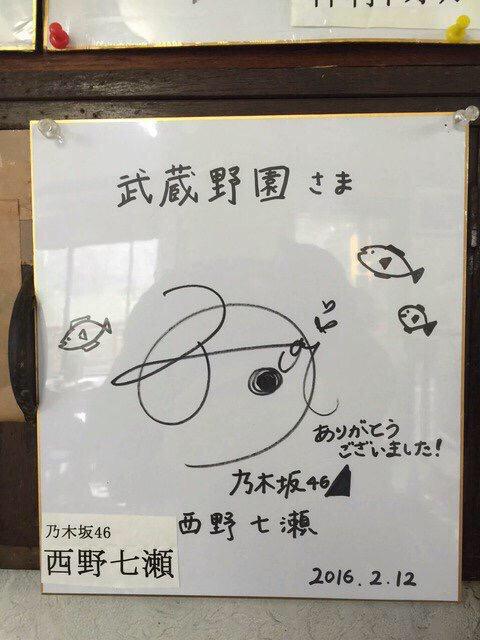 武蔵野園さま
ありがとう
ございました!
乃木坂46
西野七瀬
乃木坂46
西野七瀬
2016.2.12